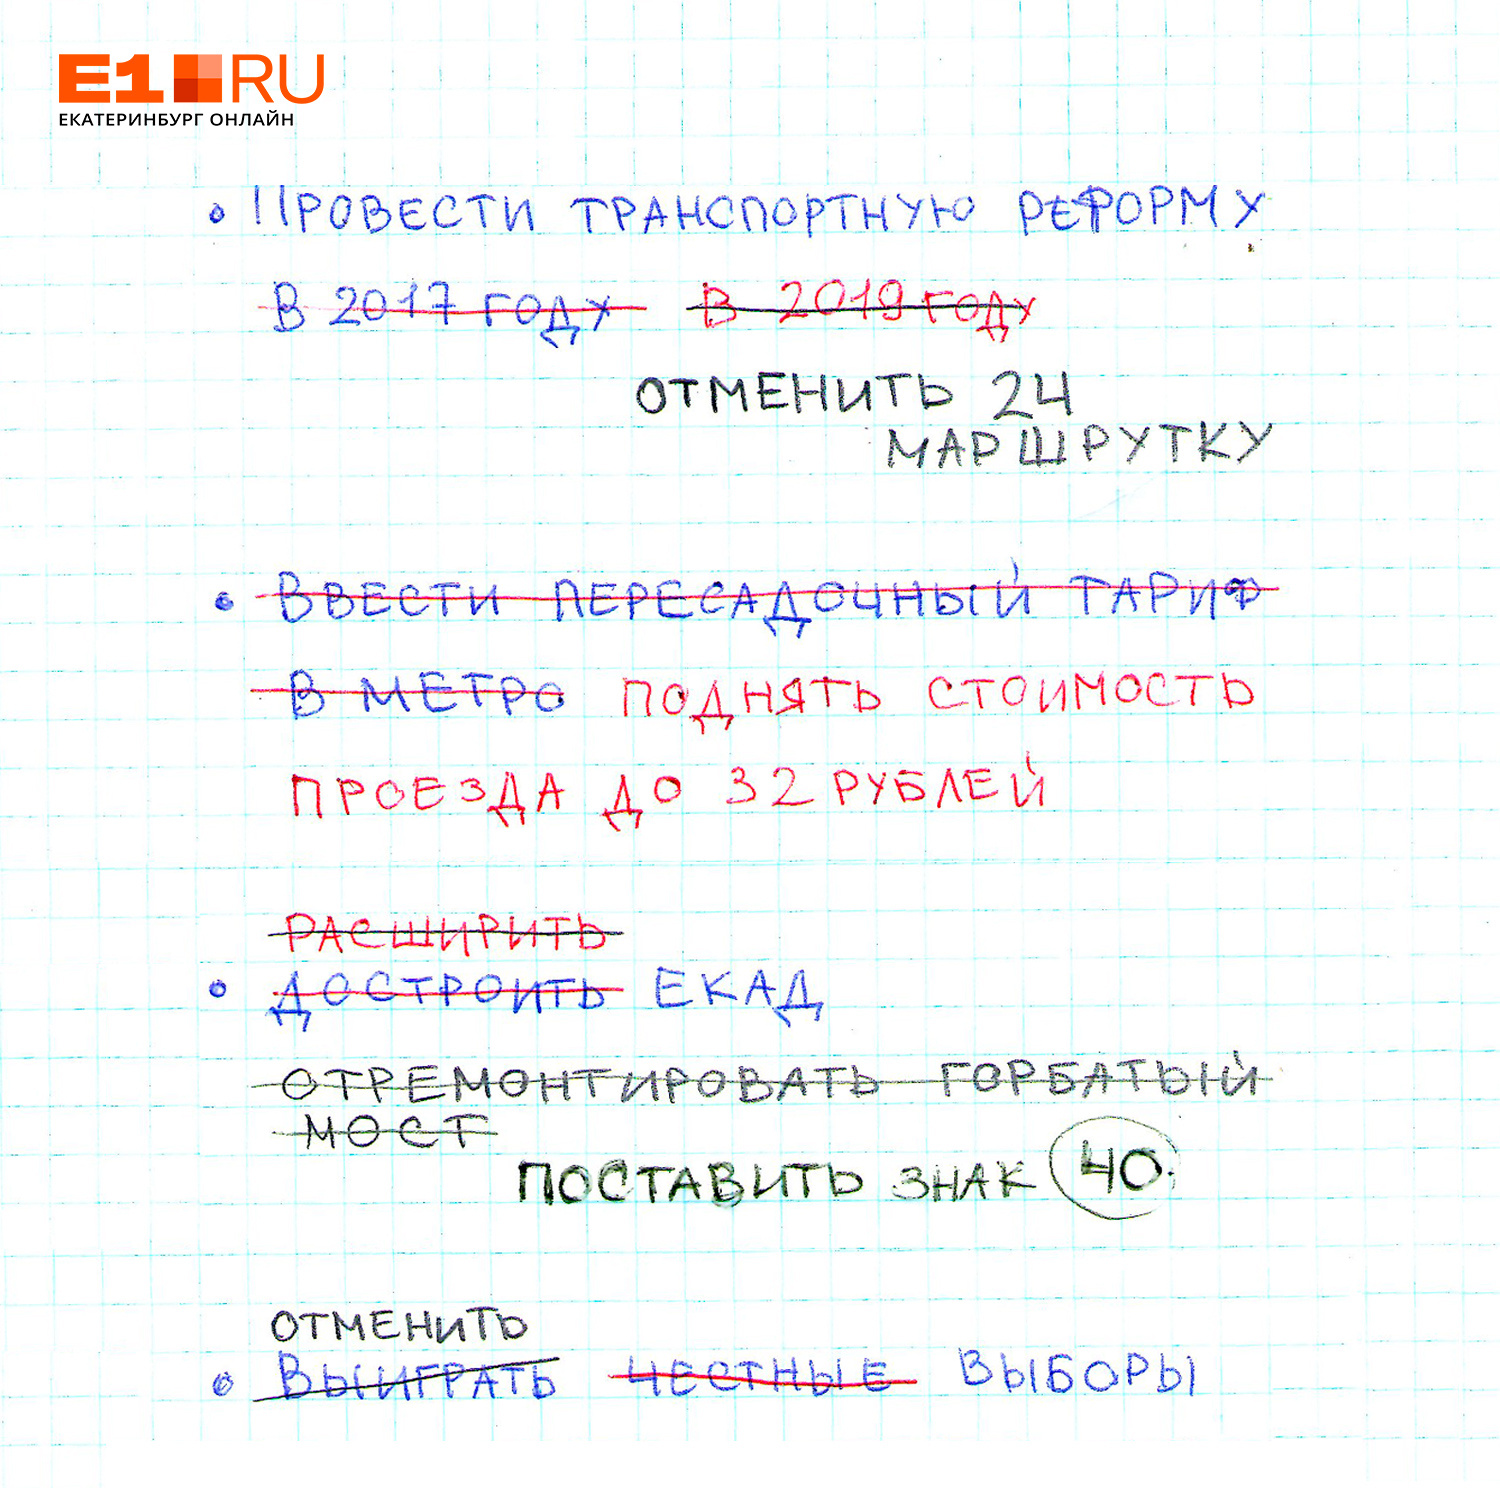 E1.RU
ЕКАТЕРИНБУРГ ОНЛАЙН
• ПРОВЕСТИ ТРАНСПОРТНУЮ РЕФОРМУ
В 2017 ГОДУ В 2019 ГОДУ
ОТМЕНИТЬ 24
МАРШРУТКУ
• ВВЕСТИ ПЕРЕСАДОЧНЫЙ ТАРИФ
В МЕТРО ПОДНЯТЬ СТОИМОСТЬ
ПРОЕЗДА ДО 32 РУБЛЕЙ
РАСШИРИТЬ
• ДОСТРОИТЬ ЕКАД
ОТРЕМОНТИРОВАТЬ ГОРБАТЫЙ
МОСТ
ПОСТАВИТЬ ЗНАК 40
ОТМЕНИТЬ
• ВЫИГРАТЬ ЧЕСТНЫЕ ВЫБОРЫ